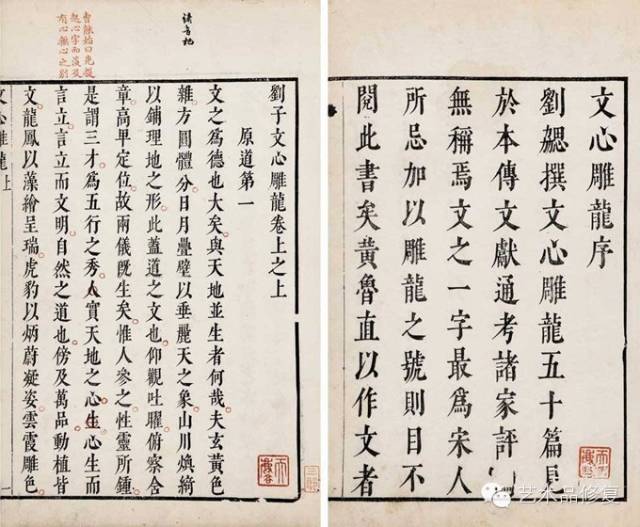 文心雕龍序
劉勰撰文心雕龍五十篇見
於本傳文獻通考諸家評
無稱焉文之一字最為宋人
所忌加以雕龍之號則目不
閱此書矣黃魯直以作文者
劉子文心雕龍卷上之上
原道第一
文之為德也大矣與天地並生者何哉夫玄黃色
雜方圓體分日月疊璧以垂麗天之象山川煥綺
以鋪理地之形此蓋道之文也仰觀吐曜俯察含
章高卑定位故兩儀旣生矣惟人參之性靈所鍾
是謂三才為五行之秀人實天地之心生心生而
言立言立而文明自然之道也傍及萬品動植皆
文龍鳳以藻繪呈瑞虎豹以炳蔚凝姿雲霞雕色
文心雕龍上
曹能始曰先提
起心字而後及
有心無心之別
艺术品修复